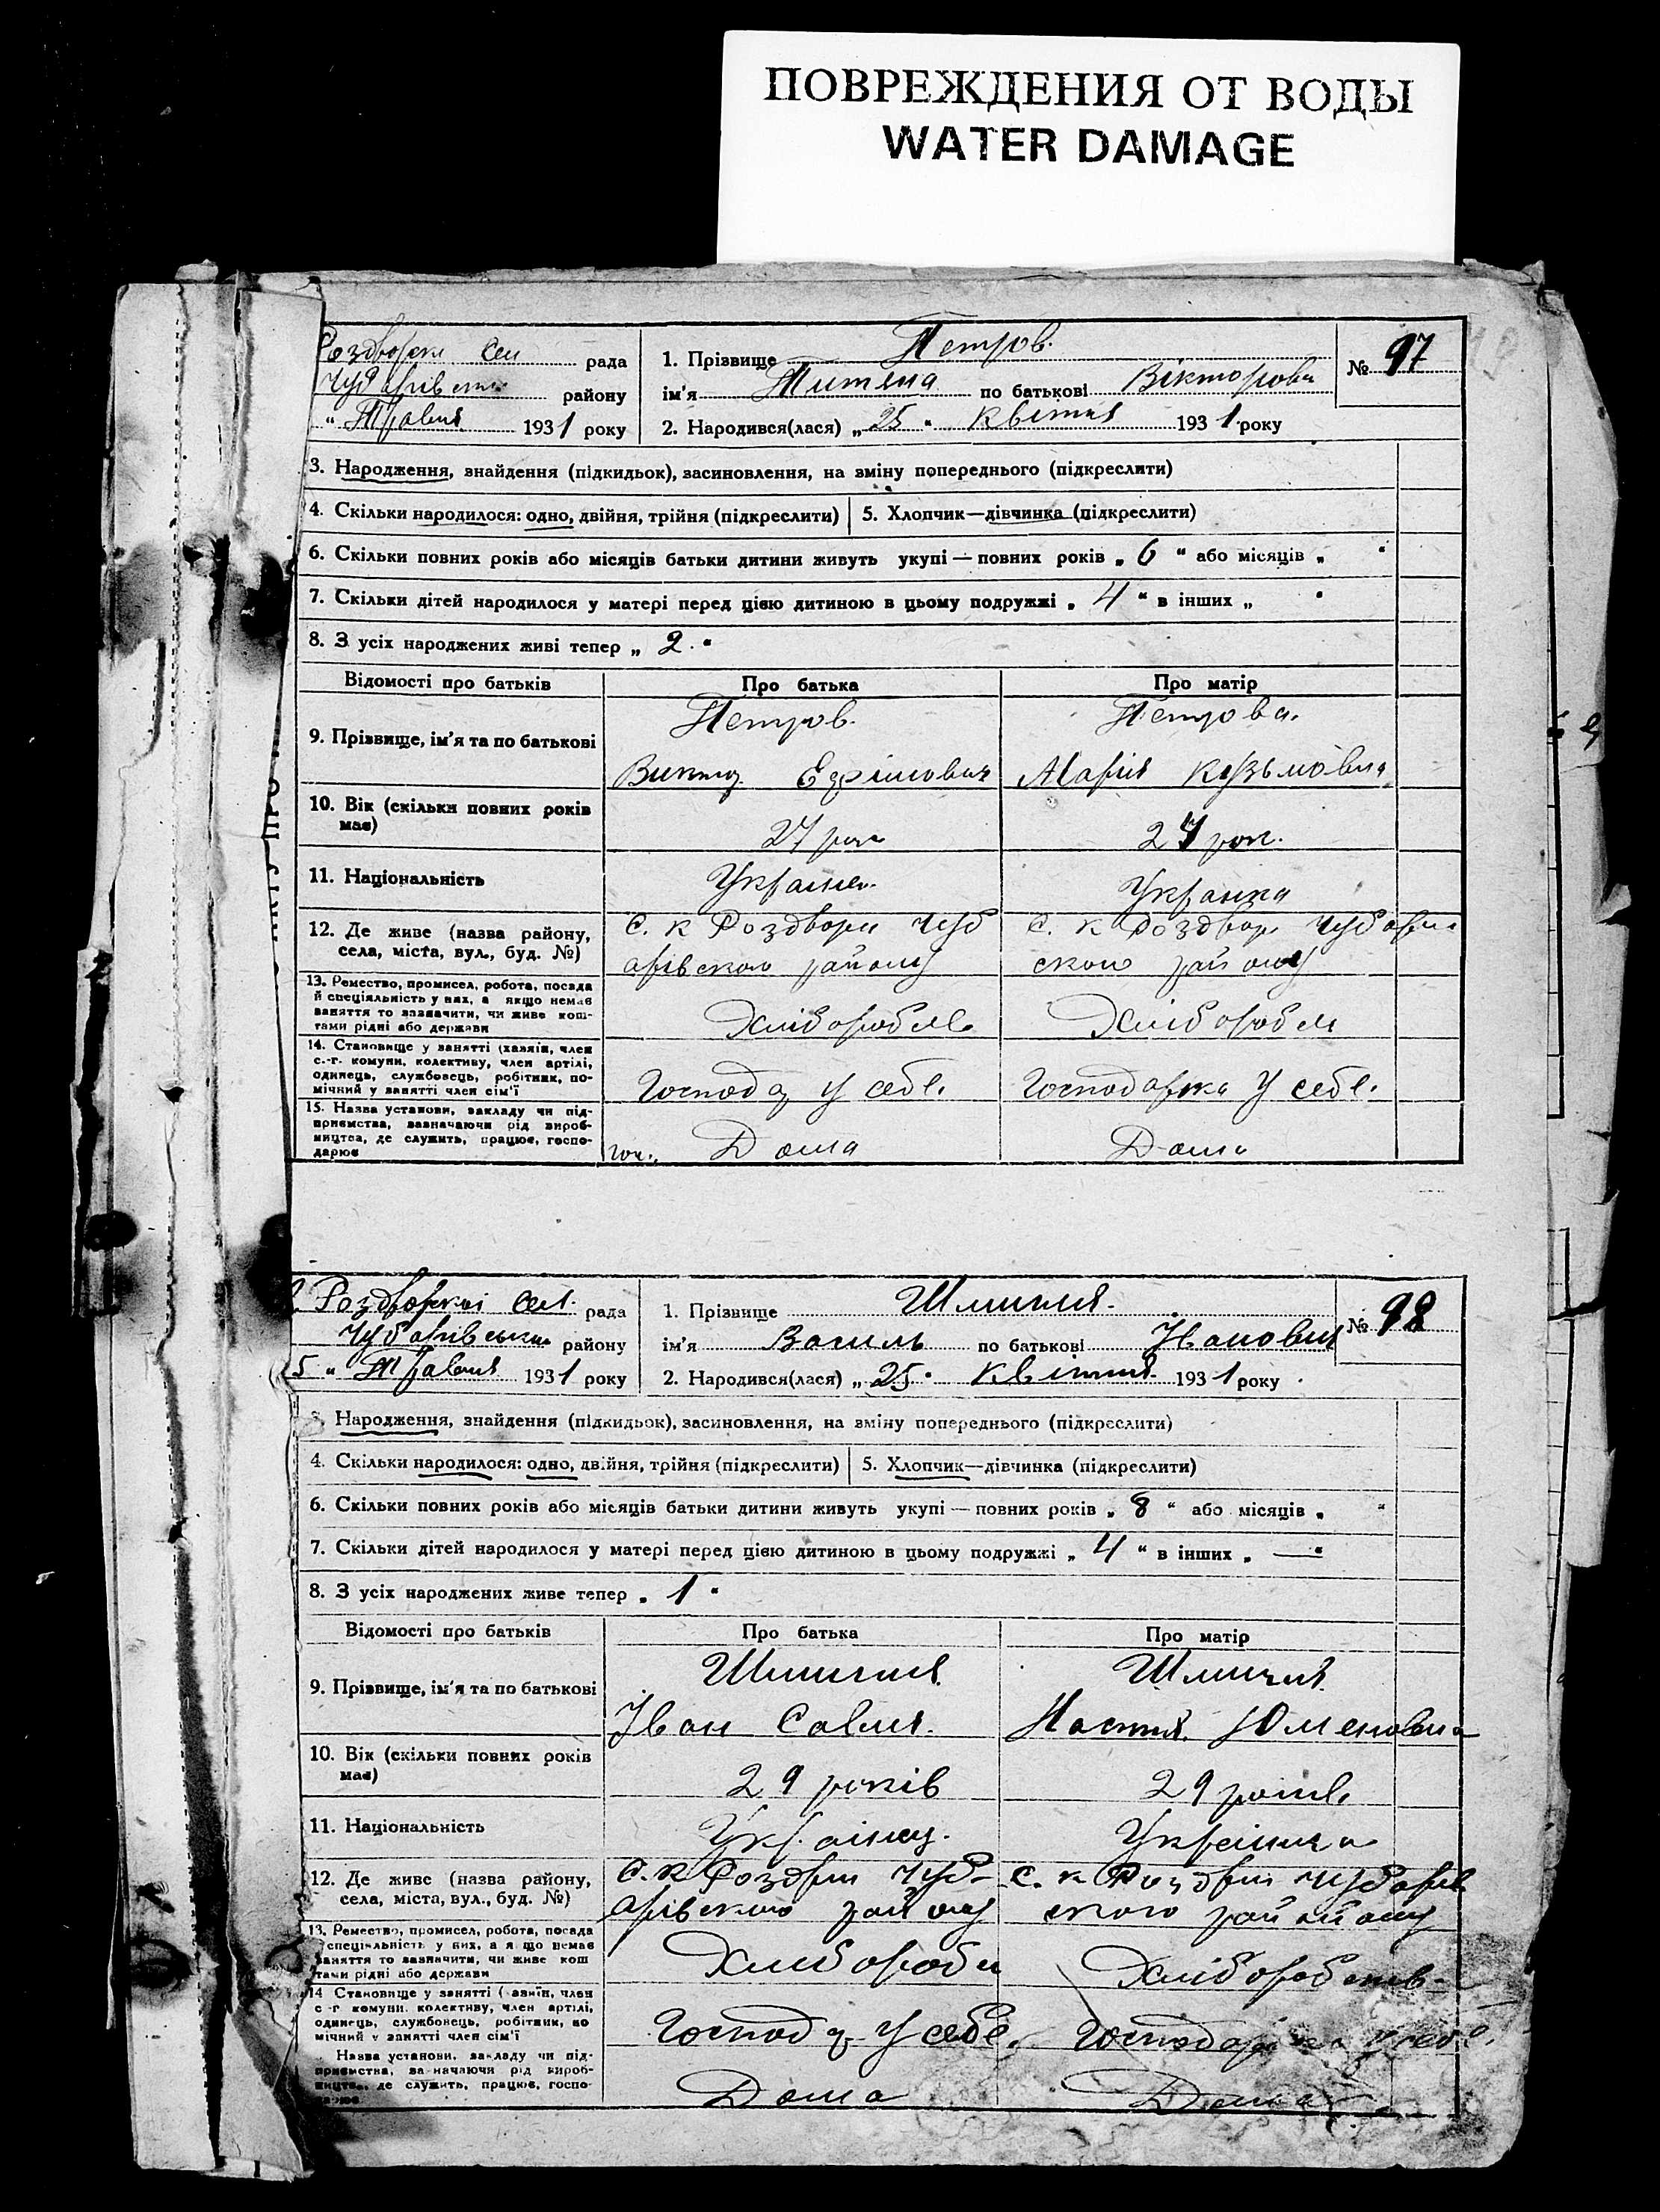 ПОВРЕЖДЕНИЯ ОТ ВОДЫ
WATER DAMAGE
сел рада
району
" Травня 1931 року
1. Прізвище Петров.
ім'я по батькові Вікторови
2. Народився(лася) „ 25 " Квітня 1931 року
№ 97
3. Народження, знайдення (підкидьок), засиновлення, на зміну попереднього (підкреслити)
4. Скільки народилося: одно, двійня, трійня (підкреслити) 5. Хлопчик—дівчинка (підкреслити)
6. Скільки повних років або місяців батьки дитини живуть укупі — повних років „ 6 " або місяців „ "
7. Скільки дітей народилося у матері перед цією дитиною в цьому подружжі „ 4 " в інших „ "
8. З усіх народжених живі тепер „ 2. "
Відомості про батьків Про батька Про матір
9. Прізвище, ім'я та по батькові
Петров. Петрова.
Єфімович Марія Кузьмовна
10. Вік (скільки повних років
має)
27 рок 24 рок.
11. Національність
Українка
12. Де живе (назва району,
села, міста, вул., буд. №)
С. к Роздори Чуб С. к Роздор Чубарів
арівського району ского району
13. Ремество, промисел, робота, посада
й спеціяльність у них, а якщо немає
заняття то зазначити, чи живе кош-
тами рідні або держави
Хлібороб Хлібороб
14. Становище у занятті (хазяїн, член
с.-г. комуни, колективу, член артілі,
одинець, службовець, робітник, по-
мічний у занятті член сім'ї
Господ у себе. Господарка у себе.
15. Назва установи, закладу чи під-
приємства, зазначаючи рід вироб-
ництва, де служить, працює, госпо-
дарює
Дома Дома
Роздорскої Сел. рада
Чубарівськи району
5 " Травня 1931 року
1. Прізвище
ім'я Василь по батькові Іванович
2. Народився(лася) „ 25 " Квітня 1931 року
№ 98
3. Народження, знайдення (підкидьок), засиновлення, на зміну попереднього (підкреслити)
4. Скільки народилося: одно, двійня, трійня (підкреслити) 5. Хлопчик—дівчинка (підкреслити)
6. Скільки повних років або місяців батьки дитини живуть укупі — повних років „ 8 " або місяців „ "
7. Скільки дітей народилося у матері перед цією дитиною в цьому подружжі „ 4 " в інших „ — "
8. З усіх народжених живе тепер „ 1 "
Відомості про батьків Про батька Про матір
9. Прізвище, ім'я та по батькові
Іван Настя
10. Вік (скільки повних років
має)
29 років 29 років
11. Національність
Українка
12. Де живе (назва району,
села, міста, вул., буд. №)
С. к Чуб- С. к Чубарів
арівського району ского
13. Ремество, промисел, робота, посада
спеціяльність у них, а я що немає
заняття то зазначити, чи живе кош
тами рідні або держави
Хлібороб
14 Становище у занятті ( азяїн, член
с -г комуни. колективу, член артілі,
одинець, службовець, робітник, по
мічний у занятті член сім'ї
Господ у себе. Господарка у себе.
Назва установи, закладу чи під-
приємства, зазначаючи рід вироб-
ництва, де служить, працює, госпо-
дарює
Дома Дома